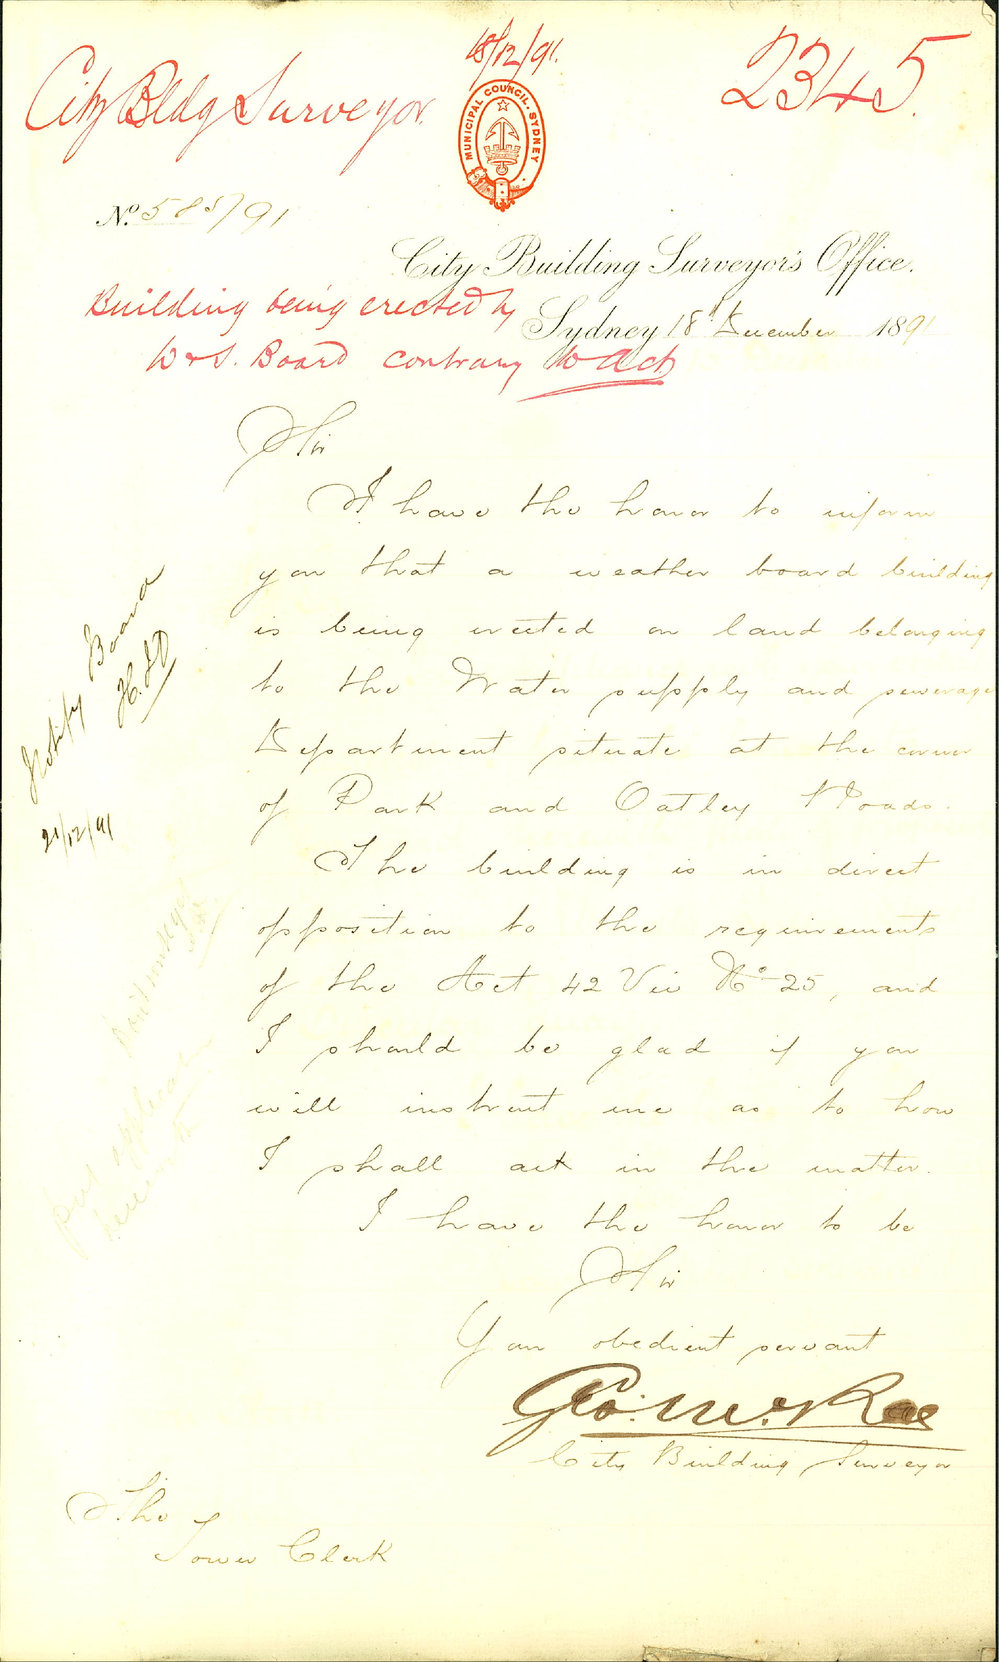 18/12/91.
City Bldg Surveyor.
2345.
MUNICIPAL COUNCIL. SYDNEY
No. 585/91
City Building Surveyor's Office.
Building being erected by
Sydney 18th December 1891
W & S. Board contrary to Act
Sir
I have the honor to inform
you that a weather board building
is being erected on land belonging
to the Water supply and sewerage
Department situate at the corner
of Park and Oatley Roads.
The building is in direct
opposition to the requirements
of the Act 42 Vic No 25, and
I should be glad if you
will instruct me as to how
I shall act in the matter.
I have the honor to be
Sir
Your obedient servant
Geo. McRae
City Building Surveyor
The
Town Clerk
Notify Board
H.J.D
21/12/91